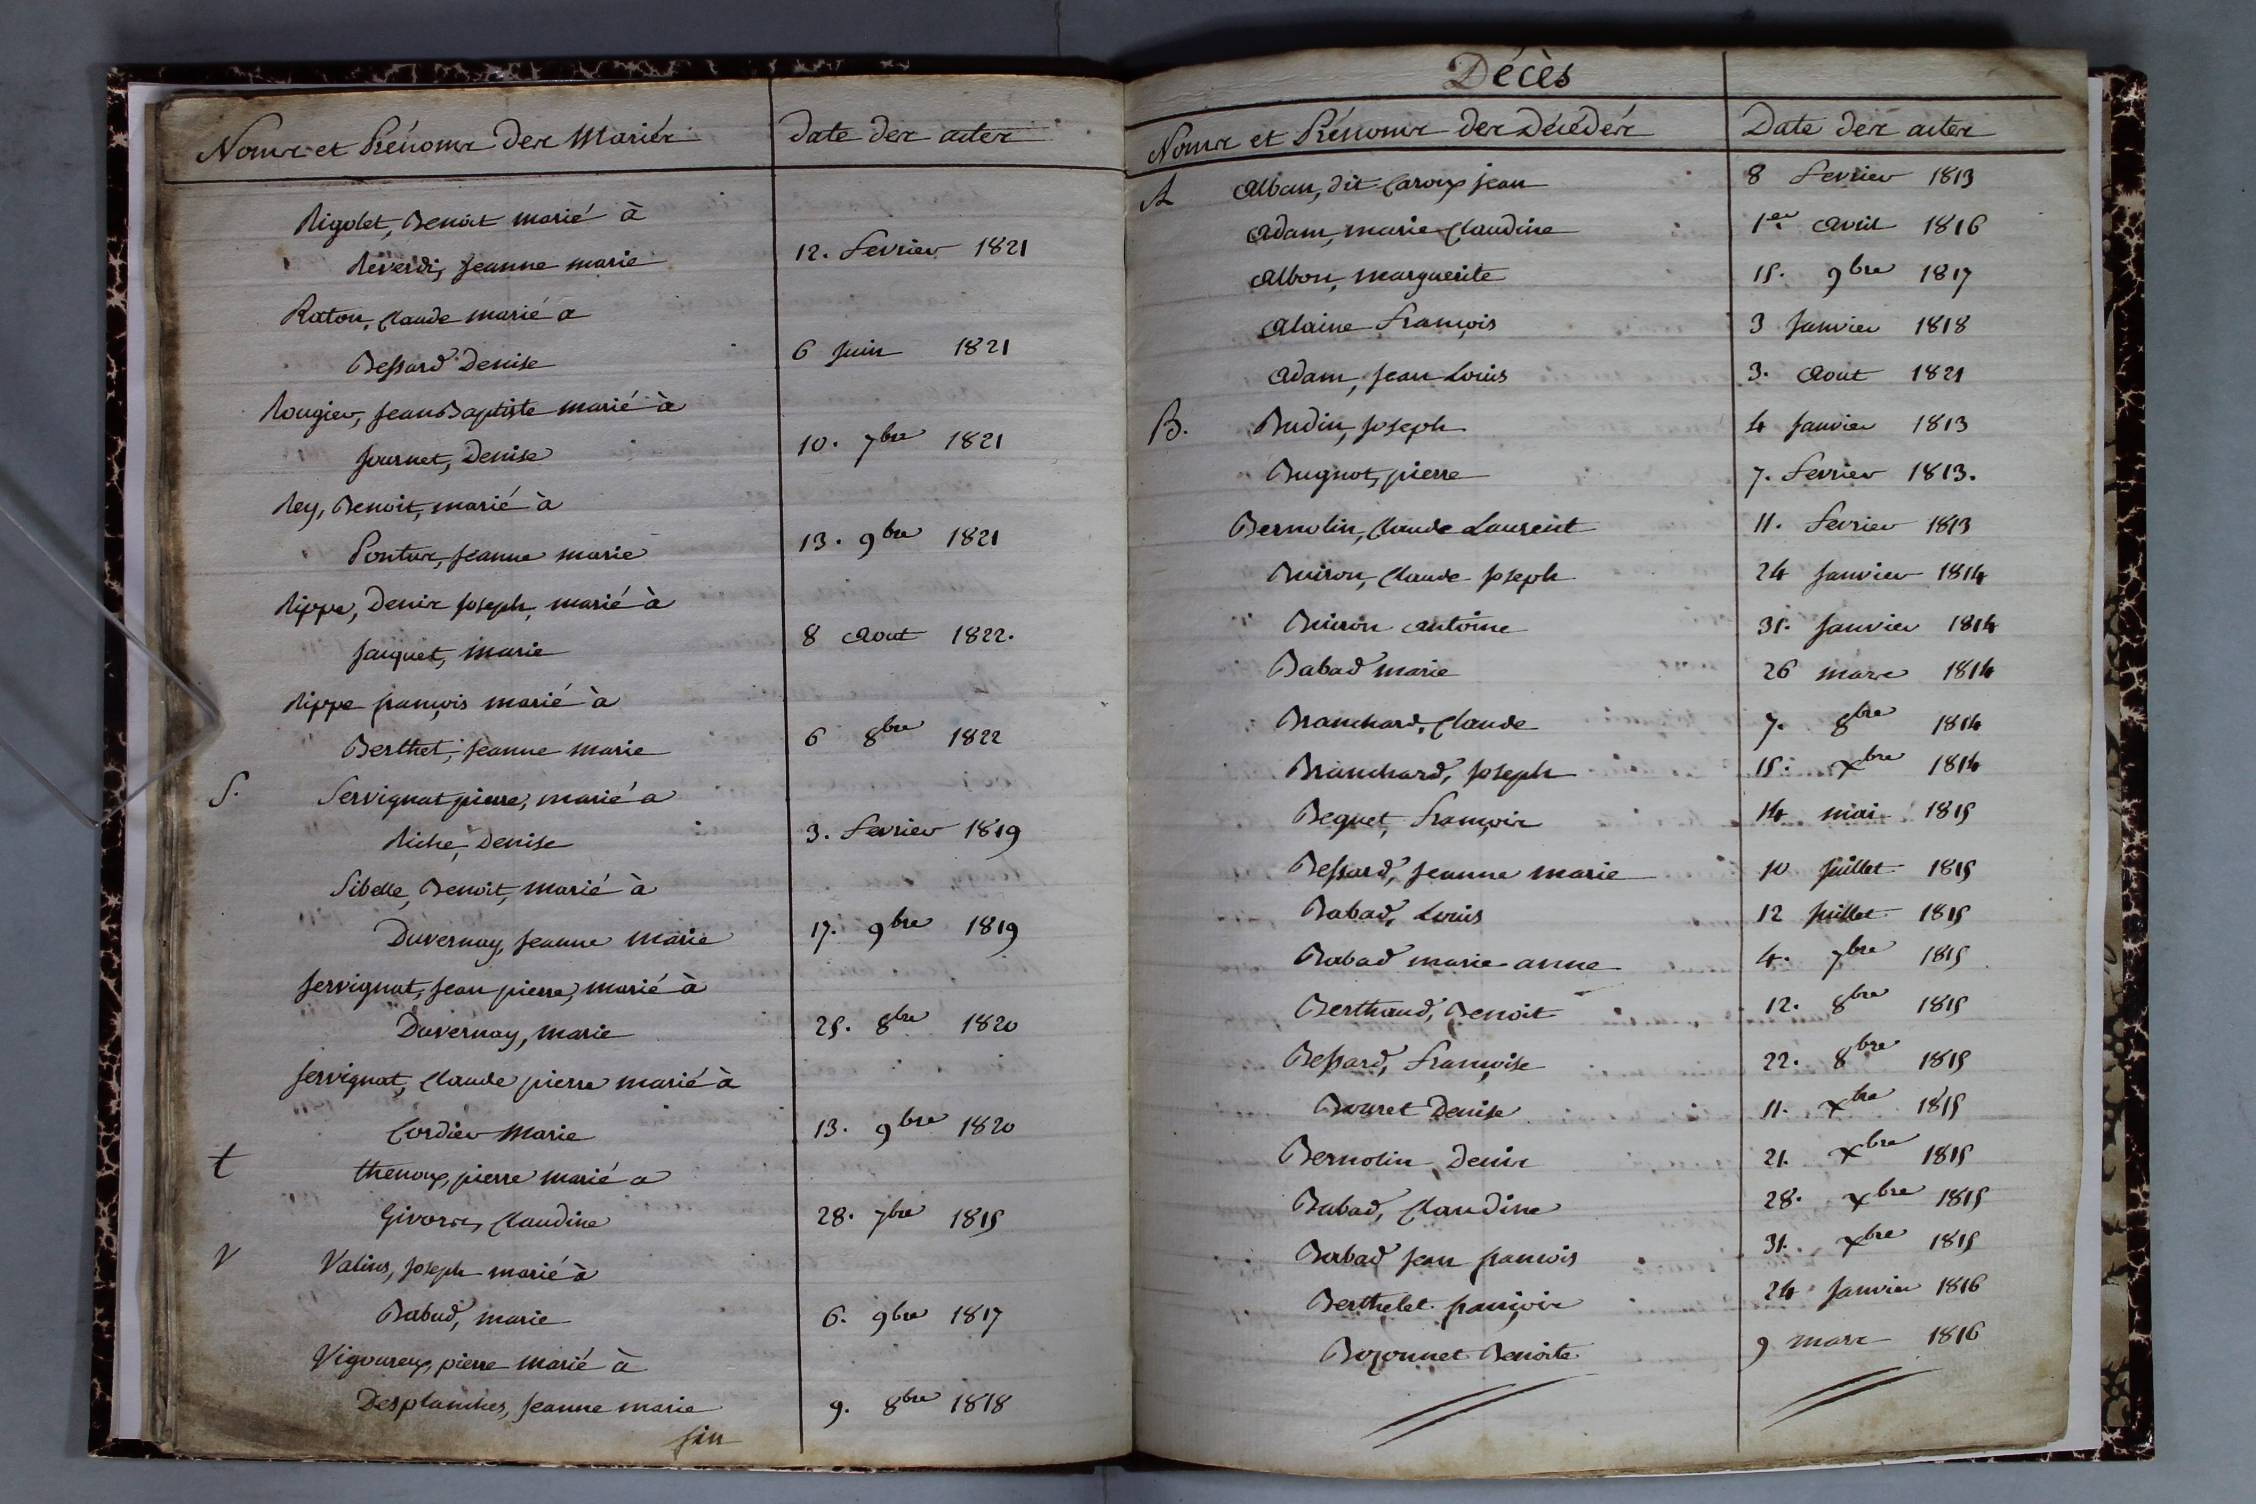 Noms et Prénoms Des Mariés	Date des actes
Rigolet, Benoit marié à
Reverdi, Jeanne marie	12. Fevrier 1821
Raton, Claude marié a
Bessard Denise	6 Juin 1821
Rougier, Jean Baptiste marié à
Journet, Denise	10. 7bre 1821
Rey, Benoit, marié à
Pontus, Jeanne marie	13. 9bre 1821
Rippe, Denis Joseph, marié à
Jaquet, marie	8 Aout 1822.
Rippe françois marié à
Berthet, Jeanne marie	6 8bre 1822
S. Servignat pierre, marié a
Riche, Denise	3. Fevrier 1819
Sibelle, Benoit, marié à
Duvernay, Jeanne marie	17. 9bre 1819
Servignat, Jean pierre, marié à
Duvernay, marie	25. 8bre 1820
Servignat, Claude pierre marié à
Cordier Marie	13. 9bre 1820
t thenoux, pierre marié a
Givors, Claudine	28. 7bre 1815
V Valins, Joseph marié à
Babad, marie	6. 9bre 1817
Vigoureux, pierre marié à
Desplanches, Jeanne marie	9. 8bre 1818
fin
Décès
Noms et Prénoms des Décédés	Date des actes
A Alban, dit Caroux Jean	8 Fevrier 1813
Adam, marie Claudine	1er Avril 1816
Albon, marguerite	15. 9bre 1817
Alaine François	3 Janvier 1818
Adam, Jean Louis	3. Aout 1821
B. Budin, Joseph	4 Janvier 1813
Bugnot, pierre	7. Fevrier 1813.
Bernolin, Claude Laurent	11. Fevrier 1813
Buiron, Claude Joseph	24 Janvier 1814
Buiron antoine	31. Janvier 1814
Babad marie	26 mars 1814
Branchard, Claude	7. 8bre 1814
Branchard, Joseph	15. Xbre 1814
Bequet, François	14 mai 1815
Bessard, Jeanne marie	10 Juillet 1815
Babad, Louis	12 Juillet 1815
Babad marie anne	4. 7bre 1815
Berthaud, Benoit	12. 8bre 1815
Bessard, Françoise	22. 8bre 1815
Bouret Denise	11. Xbre 1815
Bernolin Denis	21. Xbre 1815
Babad, Claudine	28. Xbre 1815
Babad Jean francois	31. Xbre 1815
Berthelet françois	24 Janvier 1816
Bozonnet Benoite	9 mars 1816